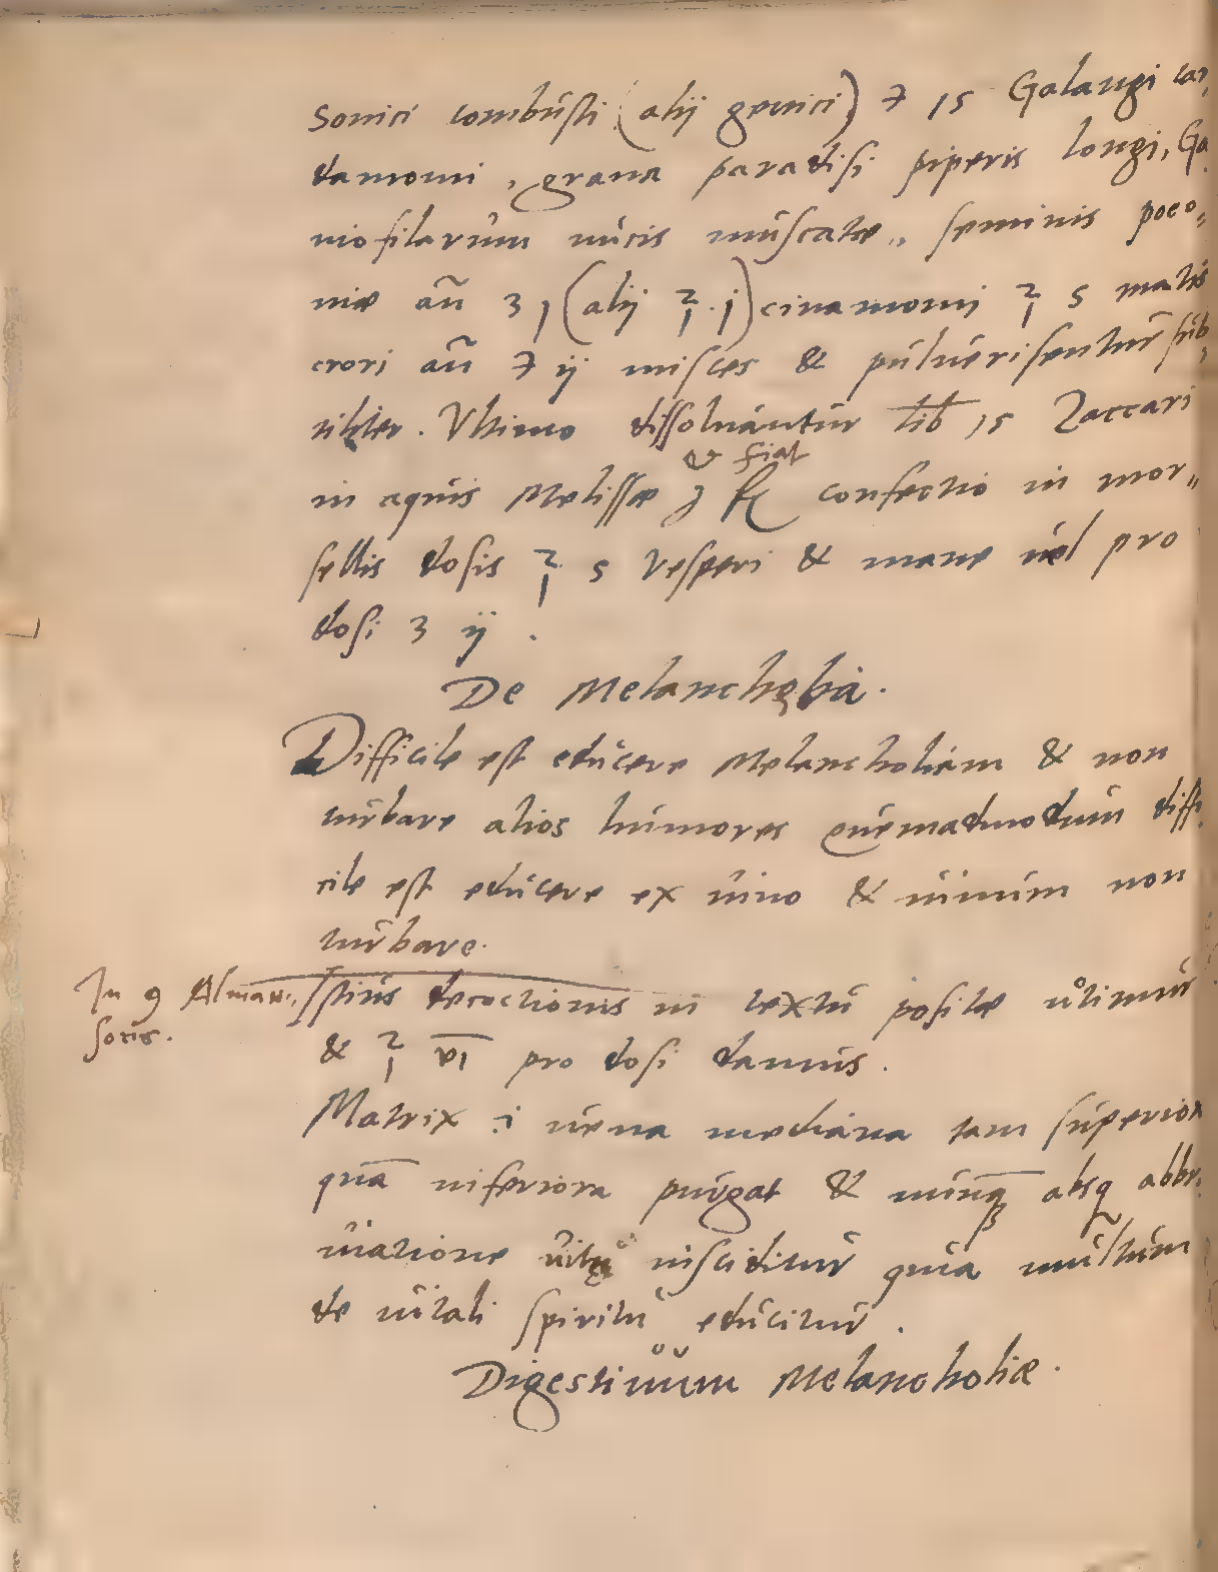 Sonici combusti (alij genuci) ℈ 1s Galangi car,
damomi, grana paradisi piperis longi, Ga
riofilarum nucis muscatæ,, seminis poeo,,
niæ añ ʒ j (alij ℥ .j) cinamomi ℥ s matis
crori añ ℈ ij misces & pulverisentur sub,
tiliter. Ultimo dissolvantur lib 1s Zaccari
& fiat
in aquis Melissæ confectio in mor,,
sellis dosis ℥ s Vesperi & mane vel pro
dosi ʒ ij .
De Melancholia.
Difficile est educere Melancholiam & non
turbare alios humores quemadmodum diffi
cile est educere ex vino & vinum non
turbare.
In 9 Alman,,
soris.
Istius decoctionis in textu positæ utimur
& ℥ vi pro dosi damus .
Matrix .i vena mediana tam superiora
quā inferiora purgat & nunq absq abbre,
viatione vitę insciditur quia multum
de vitali spiritu educitur .
Digestivum Melancholiæ .